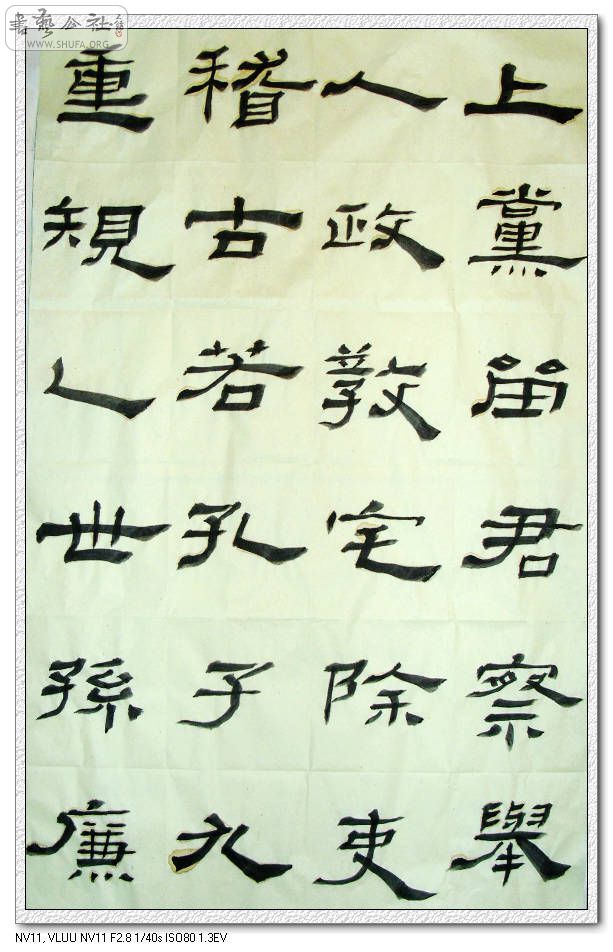 書藝公社
WWW.SHUFA.ORG
上黨留君察舉
人政教宅除吏
稽古若孔子九
重規乙世孫廉
NV11, VLUU NV11 F2.8 1/40s ISO80 1.3EV